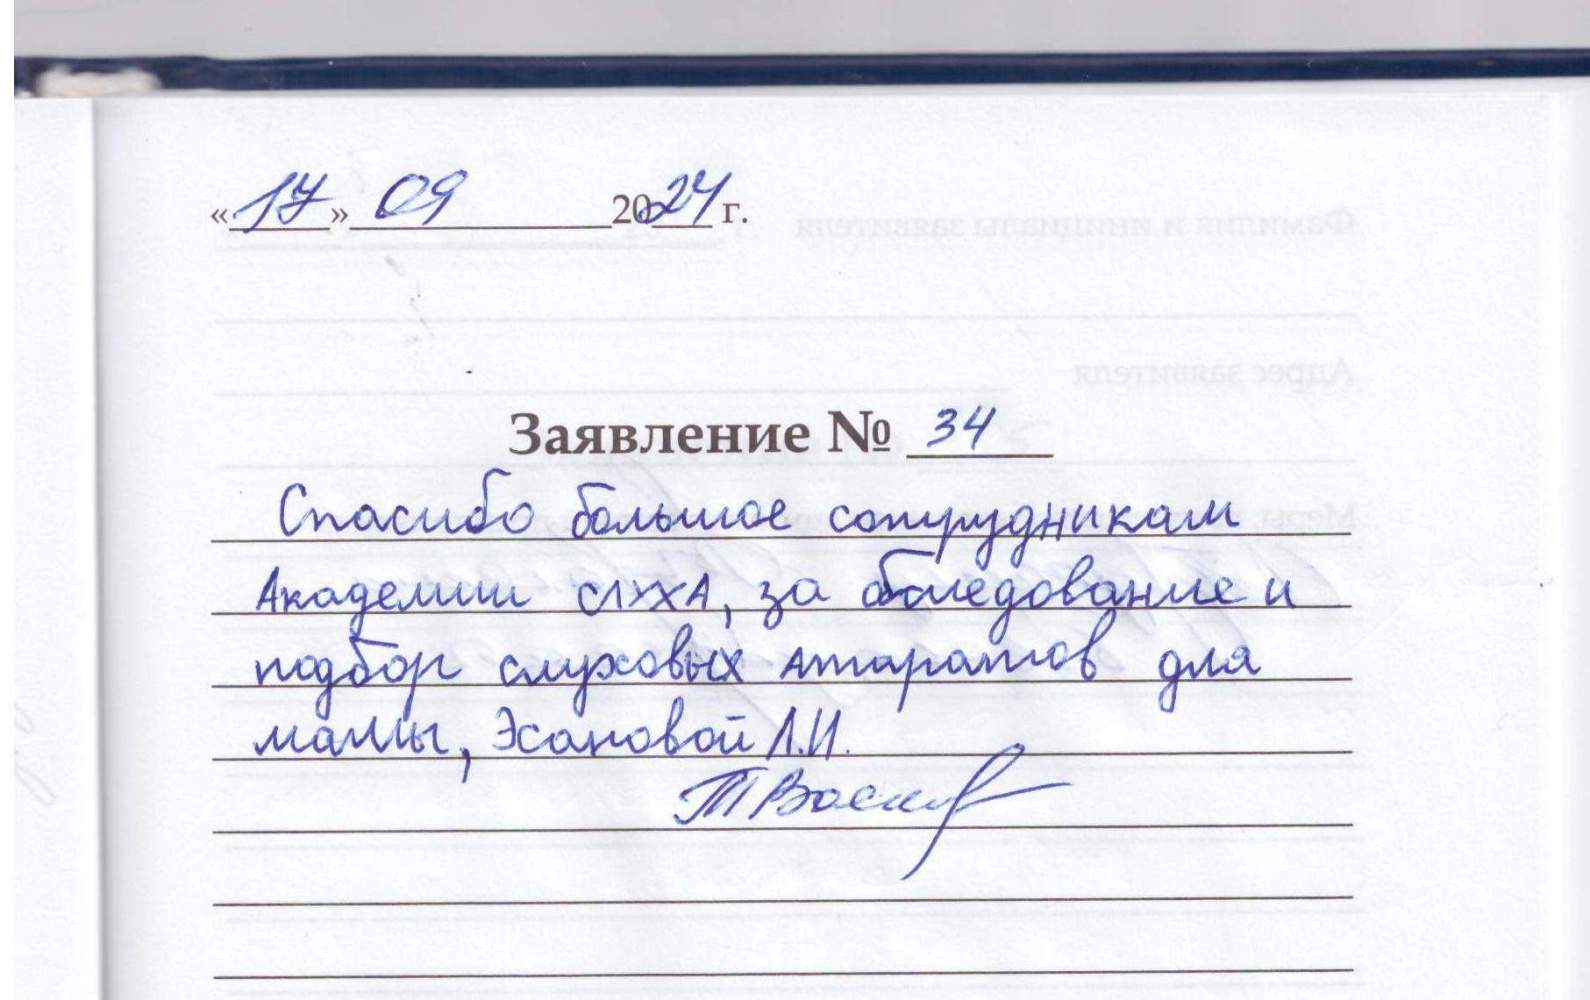 «17» 09 2024 г.
Заявление № 34
Спасибо большое сотрудникам
Академии слуха, за обследование и
подбор слуховых аппаратов для
мамы, Эсановой Л.И.